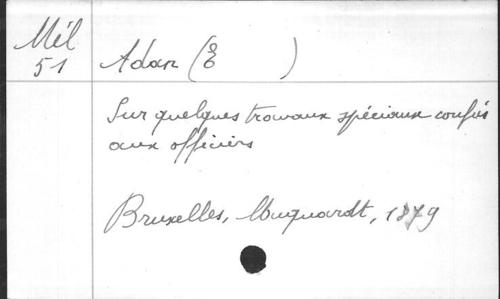 Mél
51
Adan (E )
Sur quelques travaux spéciaux confiés
aux officiers
Bruxelles, Muquardt, 1879